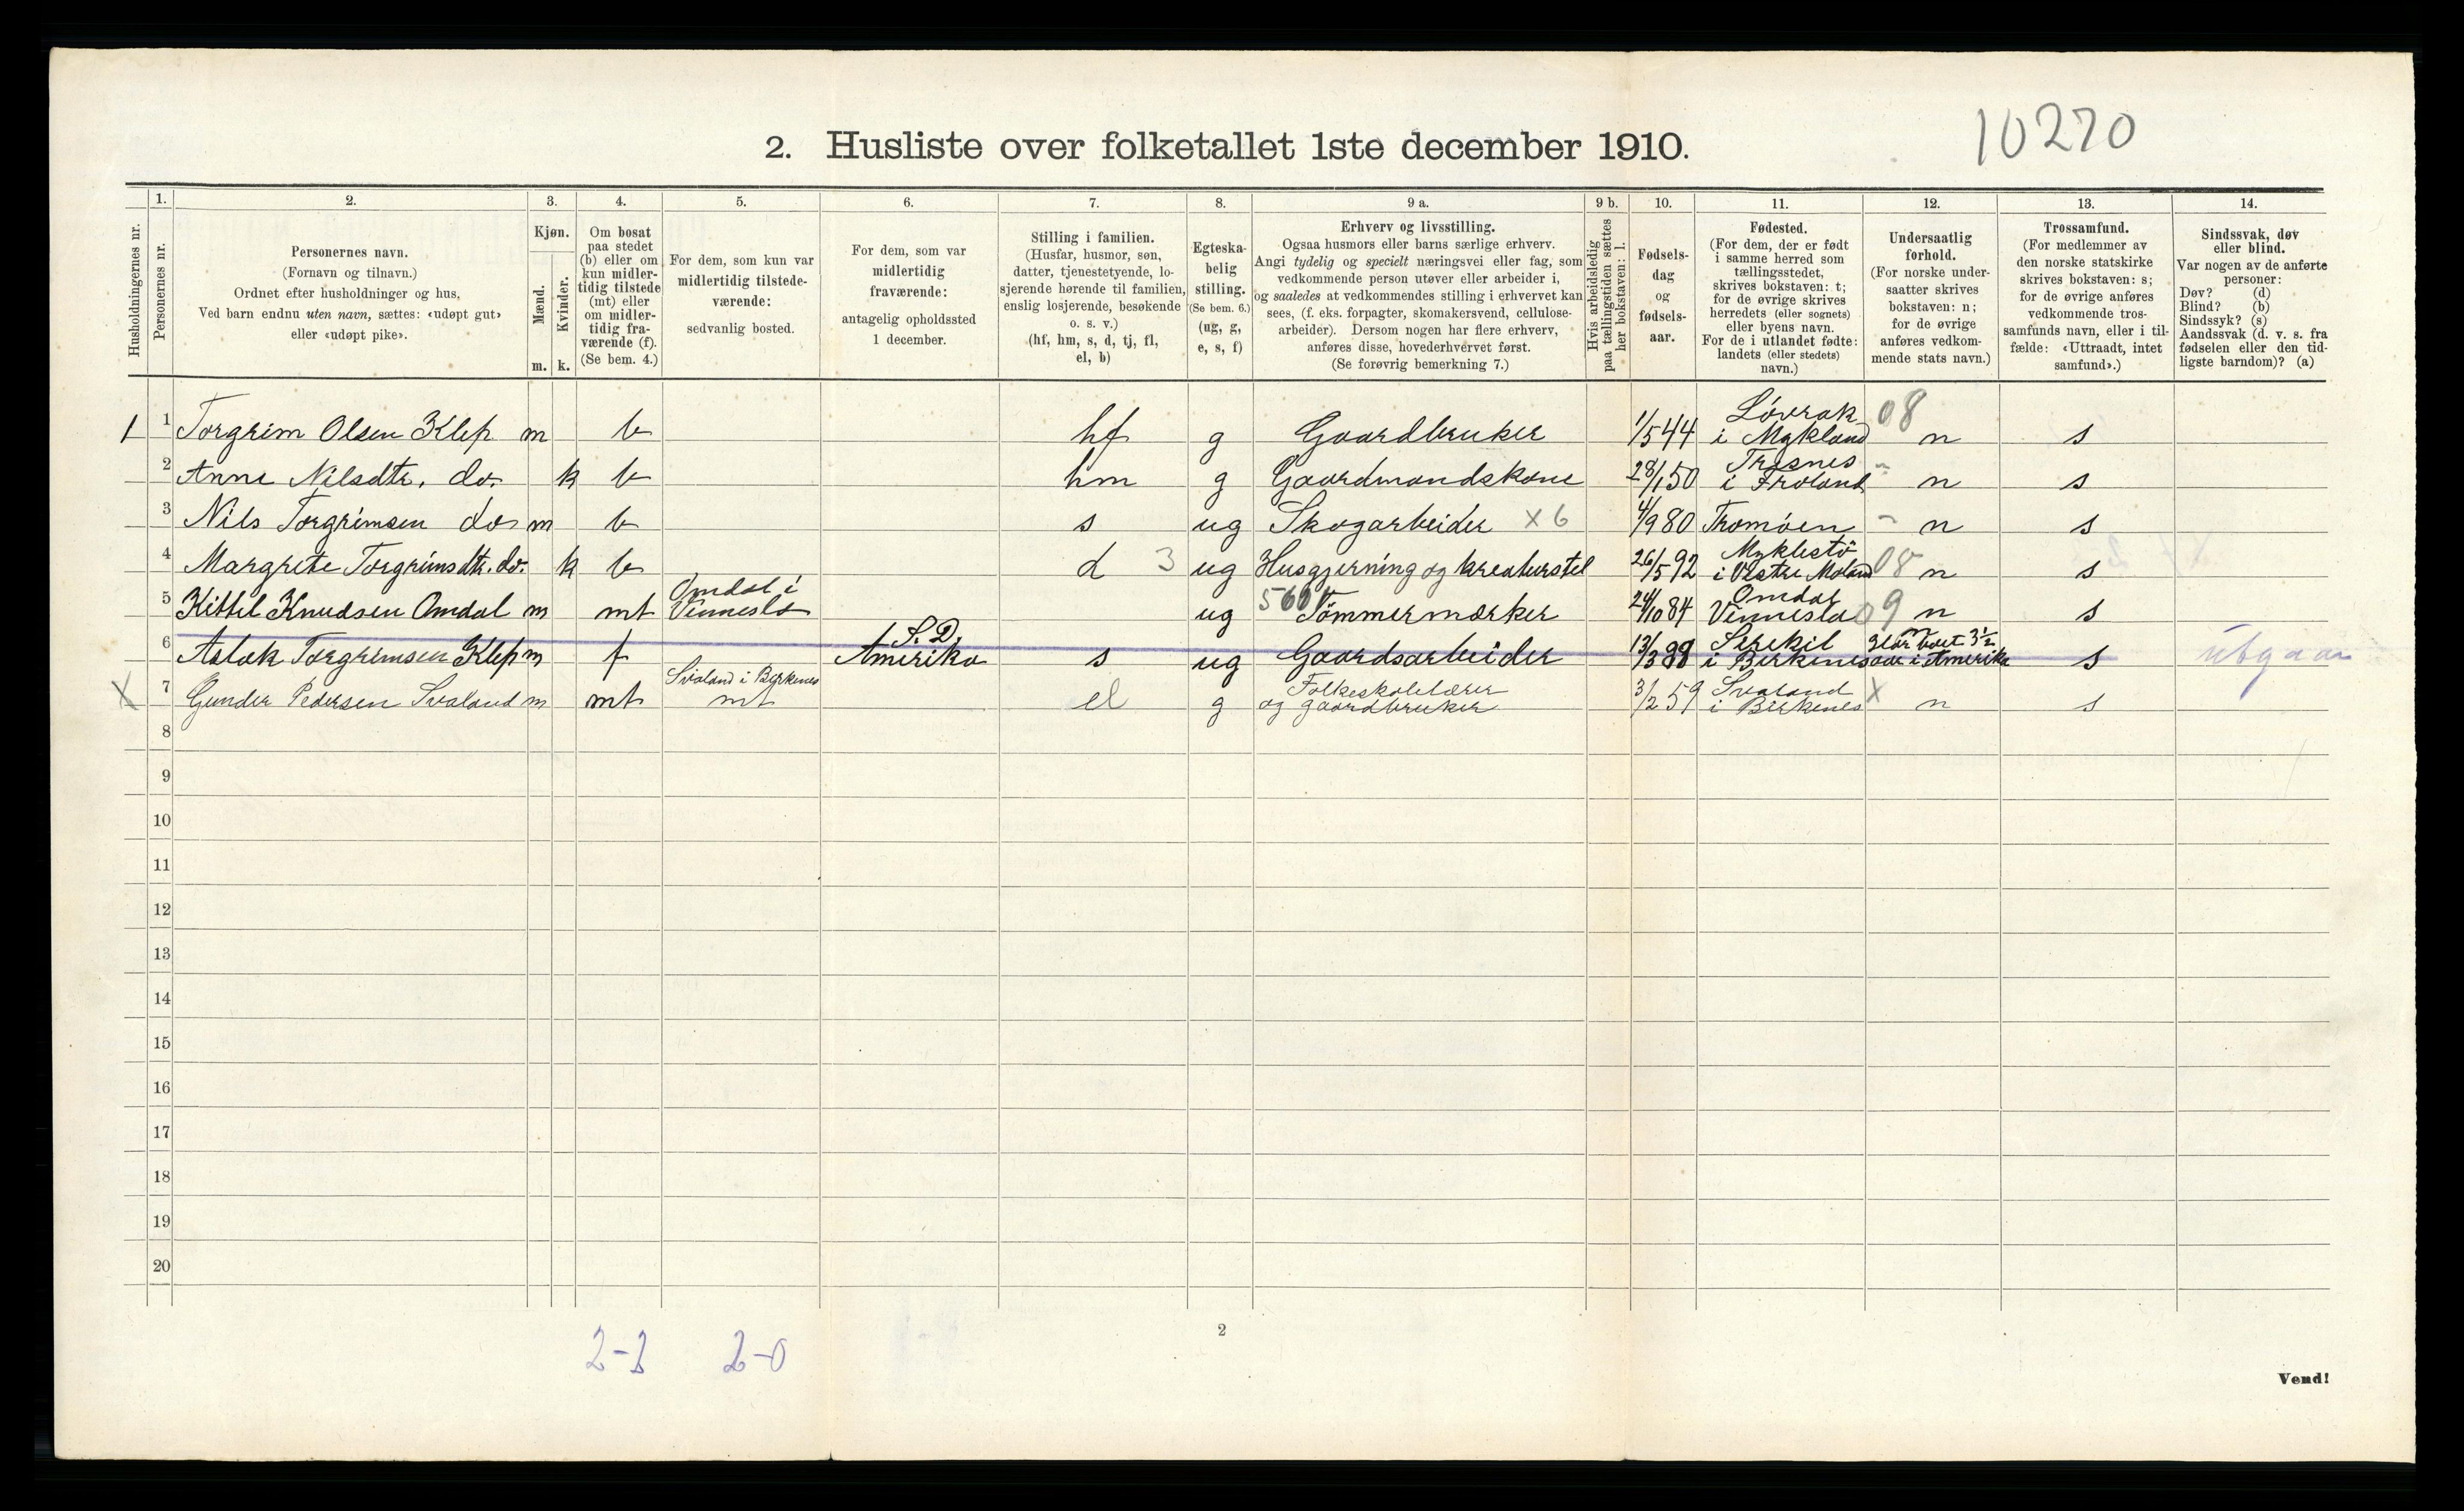 10270
2. Husliste over folketallet 1ste december 1910.
Husholdningernes nr.
1.
Personernes nr.
2.
Personernes navn.
(Fornavn og tilnavn.)
Ordnet efter husholdninger og hus,
Ved barn endnu uten navn, sættes: «udøpt gut»
eller «udøpt pike».
3.
Kjøn.
Mænd.
Kvinder.
m. k.
4.
Om bosat
paa stedet
(b) eller om
kun midler-
tidig tilstede
(mt) eller
om midler-
tidig fra-
værende (f).
(Se bem. 4.)
5.
For dem, som kun var
midlertidig tilstede-
værende:
sedvanlig bosted.
6.
For dem, som var
midlertidig
fraværende:
antagelig opholdssted
1 december.
7.
Stilling i familien.
(Husfar, husmor, søn,
datter, tjenestetyende, lo-
sjerende hørende til familien,
enslig losjerende, besøkende
o. s. v.)
(hf, hm, s, d, tj, fl,
el, b)
8.
Egteska-
belig
stilling.
(Se bem. 6.)
(ug, g,
e, s, f)
9 a.
Erhverv og livsstilling.
Ogsaa husmors eller barns særlige erhverv.
Angi tydelig og specielt næringsvei eller fag, som
vedkommende person utøver eller arbeider i,
og saaledes at vedkommendes stilling i erhvervet kan
sees, (f. eks. forpagter, skomakersvend, cellulose-
arbeider). Dersom nogen har flere erhverv,
anføres disse, hovederhvervet først.
(Se forøvrig bemerkning 7.)
9 b.
Hvis arbeidsledig
paa tællingstiden sættes
her bokstaven: l.
10.
Fødsels-
dag
og
fødsels-
aar.
11.
Fødested.
(For dem, der er født
i samme herred som
tællingsstedet,
skrives bokstaven: t;
for de øvrige skrives
herredets (eller sognets)
eller byens navn.
For de i utlandet fødte:
landets (eller stedets)
navn.)
12.
Undersaatlig
forhold.
(For norske under-
saatter skrives
bokstaven: n;
for de øvrige
anføres vedkom-
mende stats navn.)
13.
Trossamfund.
(For medlemmer av
den norske statskirke
skrives bokstaven: s;
for de øvrige anføres
vedkommende tros-
samfunds navn, eller i til-
fælde: «Uttraadt, intet
samfund».)
14.
Sindssvak, døv
eller blind.
Var nogen av de anførte
personer:
Døv? (d)
Blind? (b)
Sindssyk? (s)
Aandssvak (d. v. s. fra
fødselen eller den tid-
ligste barndom)? (a)
1 1 Torgrim Olsen Klep m b hf g Gaardbruker 1/5 44 Lövrak i Mykland 08 n s
2 Anne Nilsdtr. do. k b hm g Gaardmandskone 28/1 50 i Froland n s
3 Nils Torgrimsen do m b s ug Skogarbeider x6 4/9 80 Tromöen n s
4 Margrete Torgrimsdtr. do. k b d 3 ug Husgjerning og kreaturstel 26/5 92 Myklestö i Vestre Moland 08 n s
5 Kittil Knudsen Omdal m mt Omdal i Vennesla ug 560 Tömmermærker 24/10 84 Omdal Vennesla 09 n s
6 Aslak Torgrimsen Klep m f S. D. Amerika s ug Gaardsarbeider 13/3 88 i Birkenes n har boet 3½ aar i Amerika s utgaar
X 7 Gunder Pedersen Svaland m mt Svaland i Birkenes mt el g Folkeskolelærer og gaardbruker 3/2 59 Svaland i Birkenes X n s
8
9
10
11
12
13
14
15
16
17
18
19
20
2-2 2-0
2
Vend!